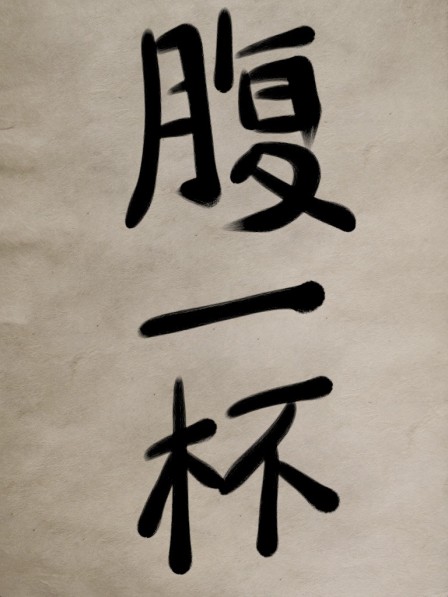 腹一杯